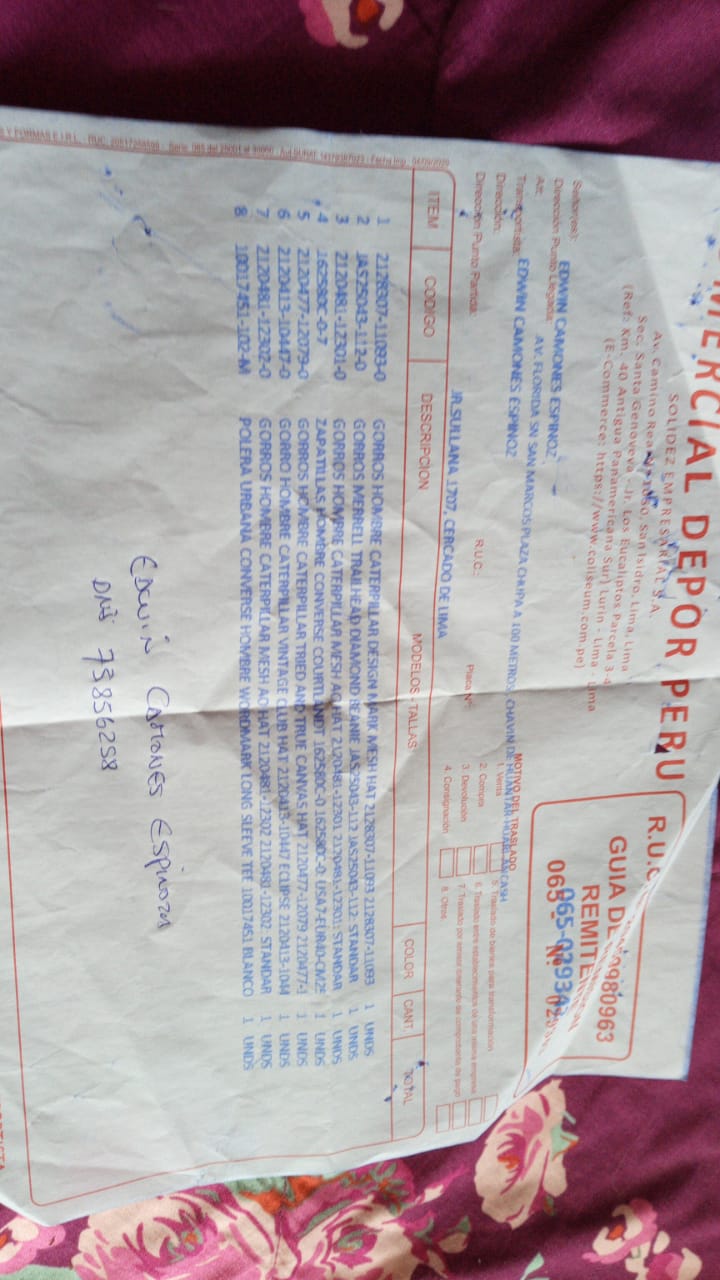 MERCIAL DEPOR PERU
SOLIDEZ EMPRESARIAL S.A.
Av. Camino Real N° 1050, San Isidro, Lima, Lima
Sec. Santa Genoveva - Jr. Los Eucaliptos Parcela 3-4
(Ref: Km. 40 Antigua Panamericana Sur) Lurin - Lima - Lima
(E-Commerce: https://www.coliseum.com.pe)
R.U.C.
980963
GUIA DE
REMITE
065- N°
065-02934
Señor(es): EDWIN CAMONES ESPINOZ
Dirección Punto Llegada: AV. FLORIDA SN SAN MARCOS PLAZA CHUPA A 100 METROS, CHAVIN DE HUANTAR-HUARI-ANCASH
Att:
Transportista: EDWIN CAMONES ESPINOZ R.U.C.: Placa N°
Dirección:
Dirección Punto Partida: JR.SULLANA 1707, CERCADO DE LIMA
MOTIVO DEL TRASLADO
1. Venta
2. Compra
3. Devolución
4. Consignación
5. Traslado de bienes para transformación
6. Traslado entre establecimientos de una misma empresa
7. Traslado por emisor itinerante de comprobante de pago
8. Otros
ITEM CODIGO DESCRIPCION MODELOS - TALLAS COLOR CANT. TOTAL
1 2128307-11093-0 GORROS HOMBRE CATERPILLAR DESIGN MARK MESH HAT 2128307-11093 2128307-11093 1 UNDS
2 JAS25043-112-0 GORROS MERRELL TRAILHEAD DIAMOND BEANIE JAS25043-112 JAS25043-112: STANDAR 1 UNDS
3 2120481-12301-0 GORROS HOMBRE CATERPILLAR MESH AO HAT 2120481-12301 2120481-12301: STANDAR 1 UNDS
4 162580C-0-7 ZAPATILLAS HOMBRE CONVERSE COURTLANDT 162580C-0 162580C-0: USA7-EUR40-CM25 1 UNDS
5 2120477-12079-0 GORROS HOMBRE CATERPILLAR TRIED AND TRUE CANVAS HAT 2120477-12079 2120477-1 1 UNDS
6 2120413-10447-0 GORRO HOMBRE CATERPILLAR VINTAGE CLUB HAT 2120413-10447 ECLIPSE 2120413-1044 1 UNDS
7 2120481-12302-0 GORROS HOMBRE CATERPILLAR MESH AO HAT 2120481-12302 2120481-12302: STANDAR 1 UNDS
8 10017451-102-M POLERA URBANA CONVERSE HOMBRE WORDMARK LONG SLEEVE TEE 10017451 BLANCO 1 UNDS
EDWIN CAMONES ESPINOZA
DNI 73856258